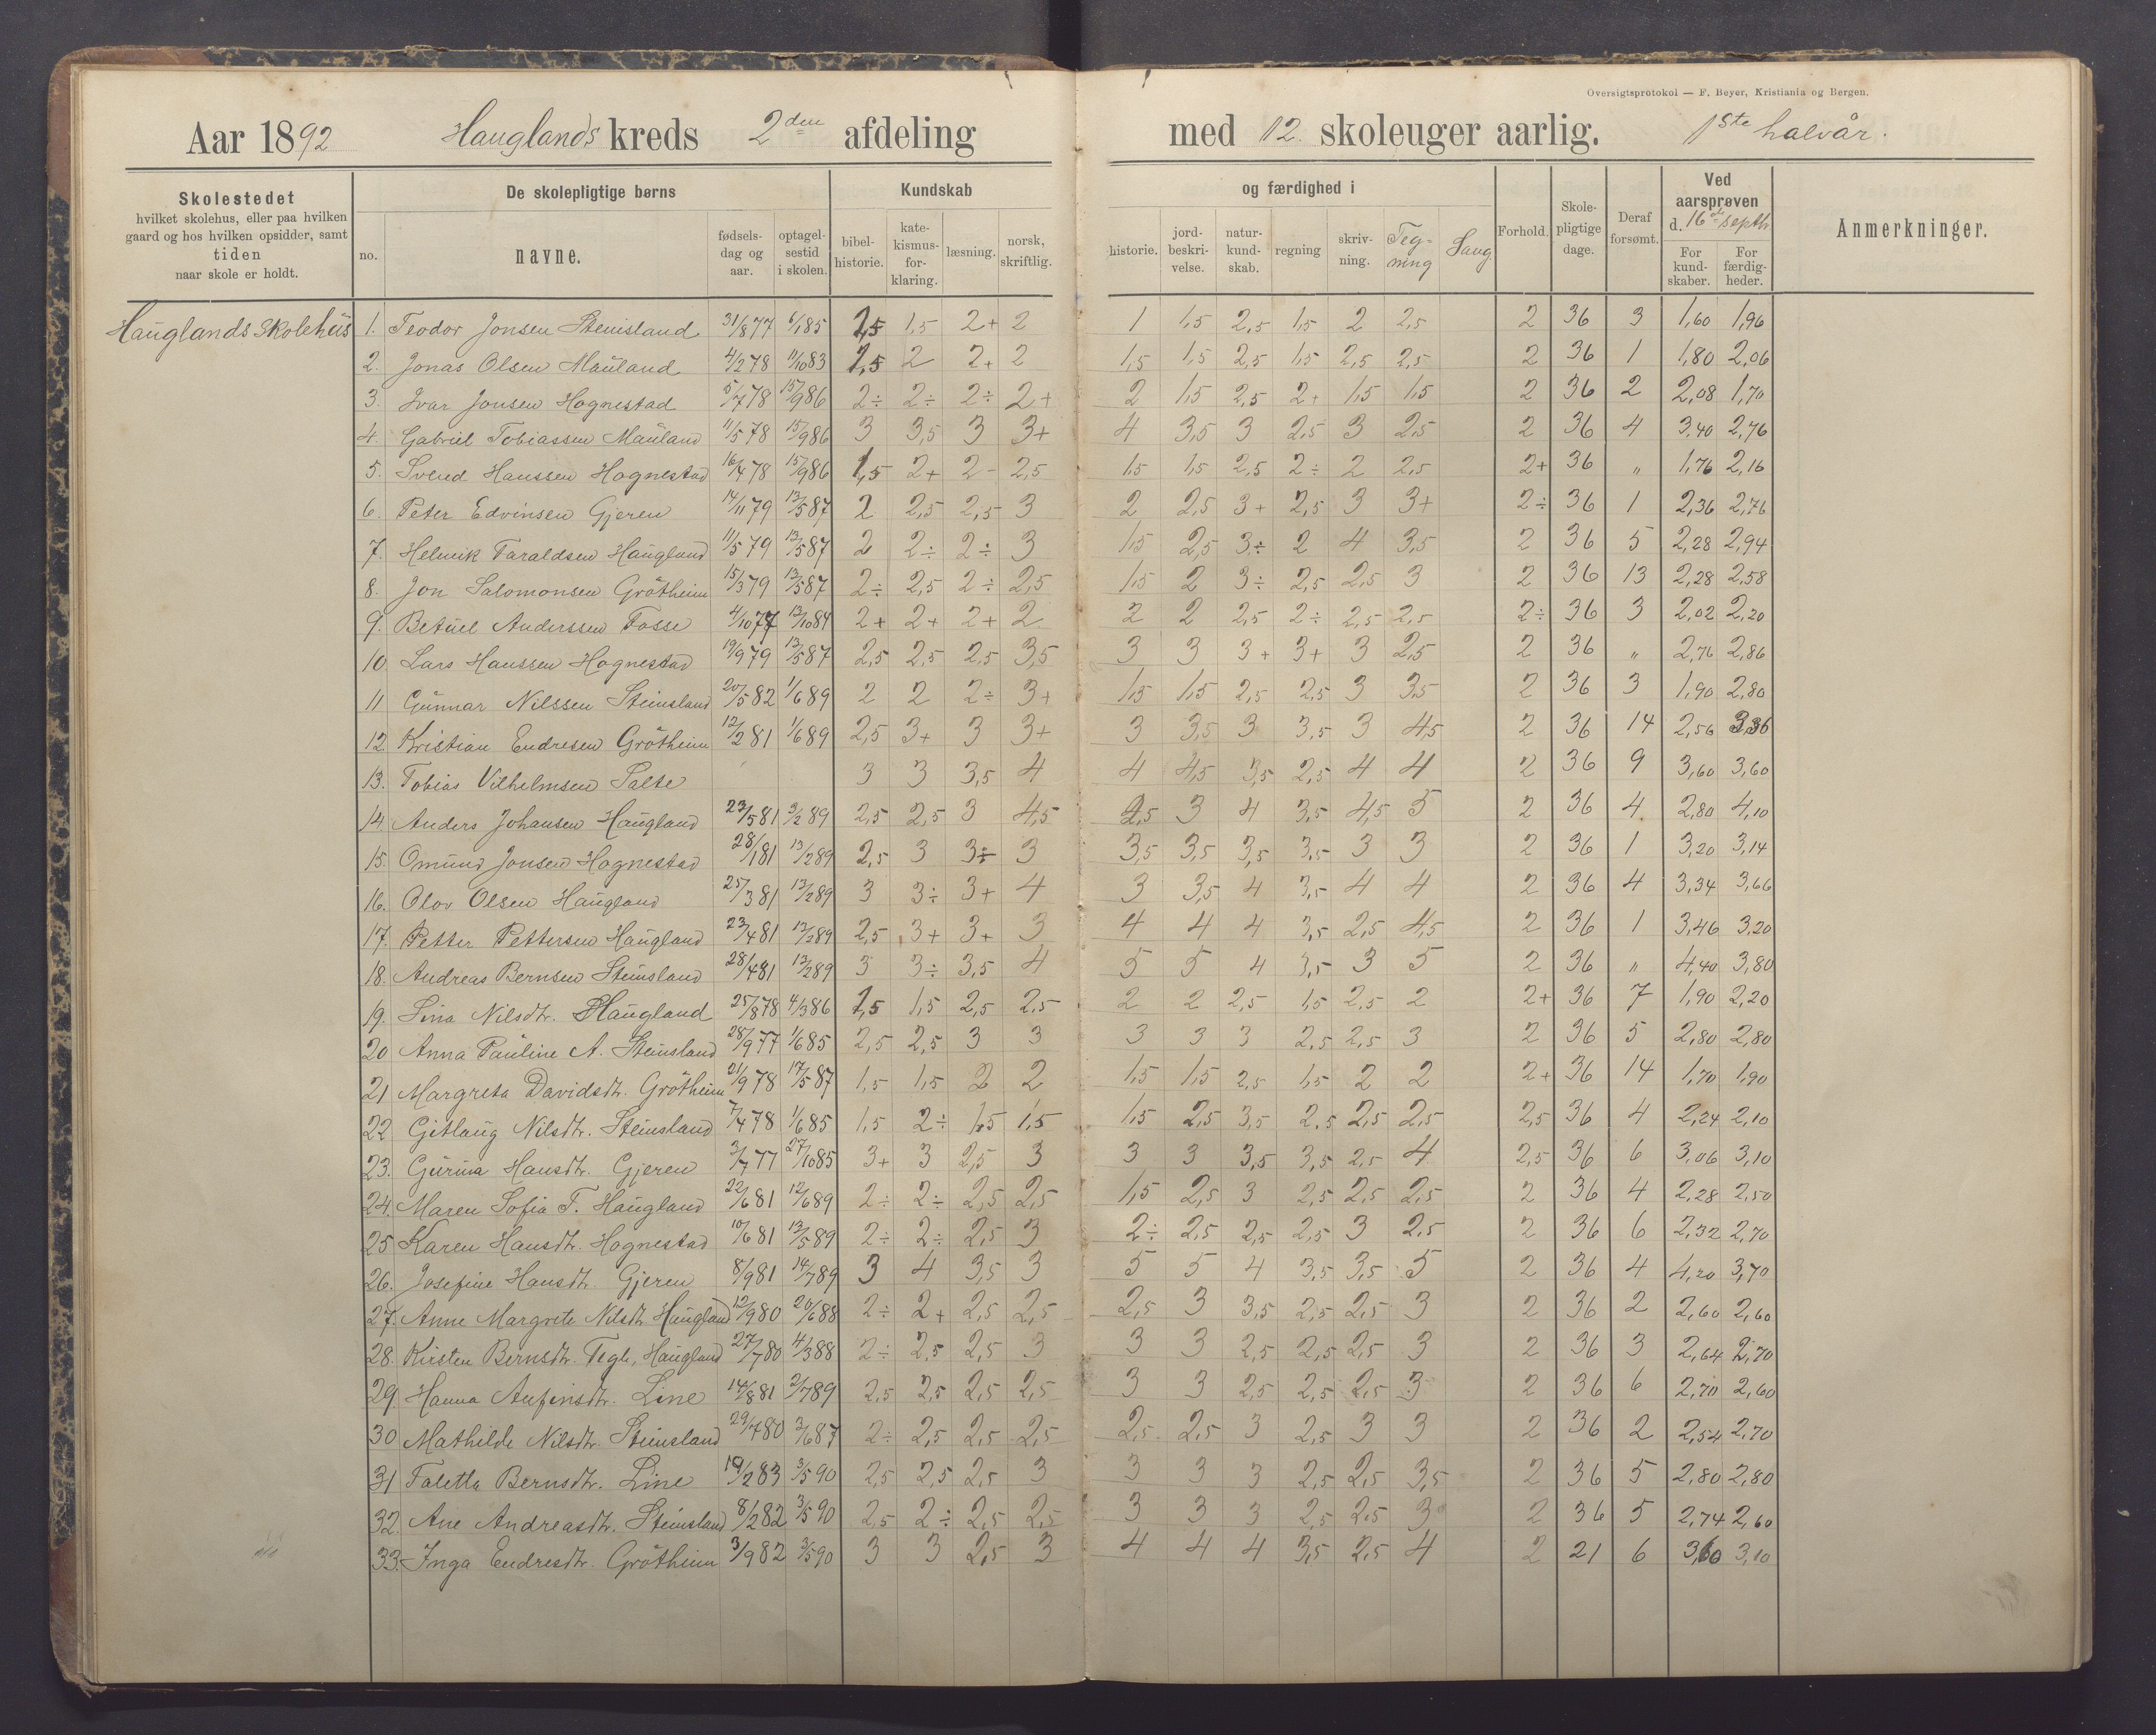 Oversigtsprotokol — F. Beyer, Kristiania og Bergen.
Aar 1892 Hauglands kreds 2den afdeling med 12. skoleuger aarlig. 1ste halvår.
Skolestedet
hvilket skolehus, eller paa hvilken
gaard og hos hvilken opsidder, samt
tiden
naar skole er holdt.
De skolepligtige børns
no. navne. fødsels-dag og aar. optagel-sestid i skolen.
Kundskab og færdighed i
bibel-historie. kate-kismus-for-klaring. læsning. norsk, skriftlig. historie. jord-beskri-velse. natur-kund-skab. regning skriv-ning. Teg-ning Sang
Forhold. Skole-pligtige dage. Deraf forsømt.
Ved aarsprøven d. 16de septbr
For kund-skaber. For færdig-heder.
Anmerkninger.
Hauglands Skolehus
1. Teodor Jonsen Steinsland 31/8 77 6/1 85 1,5 1,5 2+ 2 1 1,5 2,5 1,5 2 2,5 2 36 3 1,60 1,96
2. Jonas Olsen Mauland 4/2 78 11/10 83 1,5 2 2+ 2 1,5 1,5 2,5 1,5 2,5 2,5 2 36 1 1,80 2,06
3. Ivar Jonsen Hognestad 5/7 78 15/9 86 2÷ 2÷ 2÷ 2+ 2 1,5 2,5 2+ 1,5 1,5 2 36 2 2,08 1,70
4. Gabriel Tobiassen Mauland 11/5 78 15/9 86 3 3,5 3 3+ 4 3,5 3 2,5 3 2,5 2 36 4 3,40 2,76
5. Svend Hanssen Hognestad 16/4 78 15/9 86 1,5 2+ 2- 2,5 1,5 1,5 2,5 2÷ 2 2,5 2+ 36 „ 1,76 2,16
6. Peter Edvinsen Gjeren 14/11 79 13/5 87 2 2,5 2,5 3 2 2,5 3+ 2,5 3 3+ 2÷ 36 1 2,36 2,76
7. Helmik Taraldsen Haugland 11/5 79 13/5 87 2 2÷ 2÷ 3 1,5 2,5 3÷ 2 4 3,5 2 36 5 2,28 2,94
8. Jon Salomonsen Grötheim 15/3 79 13/5 87 2÷ 2,5 2÷ 2,5 1,5 2 3÷ 2,5 2,5 3 2 36 13 2,28 2,58
9. Betuel Anderssen Fosse 4/10 77 13/10 84 2+ 2+ 2+ 2 2 2 2,5 2÷ 2,5 2,5 2÷ 36 3 2,02 2,20
10. Lars Hanssen Hognestad 19/9 79 13/5 87 2,5 2,5 2,5 3,5 3 3 3+ 3+ 3 2,5 2 36 „ 2,76 2,86
11 Gunnar Nilssen Steinsland 20/5 82 1/6 89 2 2 2÷ 3+ 1,5 1,5 2,5 2,5 3 3,5 2 36 3 1,90 2,80
12 Kristian Endresen Grötheim 12/2 81 1/6 89 2,5 3+ 3 3+ 3 3,5 3 3,5 3 4,5 2 36 14 2,56 3,36
13. Tobias Vilhelmsen Salte 3 3 3,5 4 4 4,5 3,5 2,5 4 4 2 36 9 3,60 3,60
14. Anders Johansen Haugland 23/5 81 3/2 89 2,5 2,5 3 4,5 2,5 3 4 3,5 4,5 5 2 36 4 2,80 4,10
15. Omund Jonsen Hognestad 28/1 81 13/2 89 2,5 3 3÷ 3 3,5 3,5 3,5 3,5 3 3 2 36 1 3,20 3,14
16. Olov Olsen Haugland 25/3 81 13/2 89 3 3÷ 3+ 4 3 3,5 4 3,5 4 4 2 36 4 3,34 3,66
17. Petter Pettersen Haugland 23/4 81 13/2 89 2,5 3+ 3+ 3 4 4 4 3,5 2,5 4,5 2 36 1 3,46 3,20
18. Andreas Bernsen Steinsland 28/4 81 13/2 89 3 3÷ 3,5 4 5 5 4 3,5 3 5 2 36 „ 4,40 3,80
19. Sina Nilsdtr. Haugland 25/8 78 4/3 86 1,5 1,5 2,5 2,5 2 2 2,5 1,5 2,5 2 2+ 36 7 1,90 2,20
20 Anna Pauline A. Steinsland 28/9 77 1/6 85 2,5 2,5 3 3 3 3 3 2,5 2,5 3 2 36 5 2,80 2,80
21 Margreta Davidsdt. Grötheim 21/9 78 17/5 87 1,5 1,5 2 2 1,5 1,5 2,5 1,5 2 2 2+ 36 14 1,70 1,90
22 Gitlaug Nilsdtr. Steinsland 7/4 78 1/6 85 1,5 2÷ 1,5 1,5 1,5 2,5 3,5 2,5 2,5 2,5 2,5 36 4 2,24 2,10
23. Gurina Hansdtr. Gjeren 3/7 77 27/10 85 3+ 3 2,5 3 3 3 3,5 3,5 2,5 4 2,5 36 6 3,06 3,10
24. Maren Sofia T. Haugland 22/6 81 12/6 89 2÷ 2÷ 2,5 2,5 1,5 2,5 3 2,5 2,5 2,5 2 36 4 2,28 2,50
25 Karen Hansdtr. Hognestad 10/6 81 13/5 89 2÷ 2÷ 2,5 3 2÷ 2,5 2,5 2,5 3 2,5 2 36 6 2,32 2,70
26. Josefine Hansdtr. Gjeren 8/9 81 14/7 89 3 4 3,5 3 5 5 4 3,5 3,5 5 2 36 4 4,20 3,70
27. Anne Margrete Nilsdtr. Haugland 12/9 80 20/6 88 2÷ 2+ 2,5 2,5 2,5 3 3,5 2,5 2,5 3 2 36 2 2,60 2,60
28. Kirsten Bernsdtr. Tegle, Haugland 27/7 80 4/3 88 2÷ 2,5 2,5 3 3 3 2,5 2,5 2,5 3 2 36 3 2,64 2,70
29. Hanna Anfinsdtr. Line 14/8 81 2/7 89 2,5 2,5 2,5 2,5 3 3 2,5 2,5 2,5 3 2 36 6 2,70 2,60
30 Mathilde Nilsdtr. Steinsland 29/7 80 3/6 87 2÷ 2,5 2,5 2,5 2,5 2,5 3 2,5 3 3 2 36 2 2,54 2,70
31 Taletta Bernsdtr. Line 19/2 83 3/5 90 2,5 2,5 2,5 3 3 3 3 2,5 2,5 3,5 2 36 5 2,80 2,80
32. Ane Andreasdtr. Steinsland 8/2 82 3/5 90 2,5 2÷ 2,5 2,5 3 3 3 2,5 2,5 3 2 36 5 2,74 2,60
33. Inga Endresdtr. Grötheim 3/9 82 3/5 90 3 3 2,5 3 4 4 4 3,5 2,5 4 2 21 6 3,60 3,10